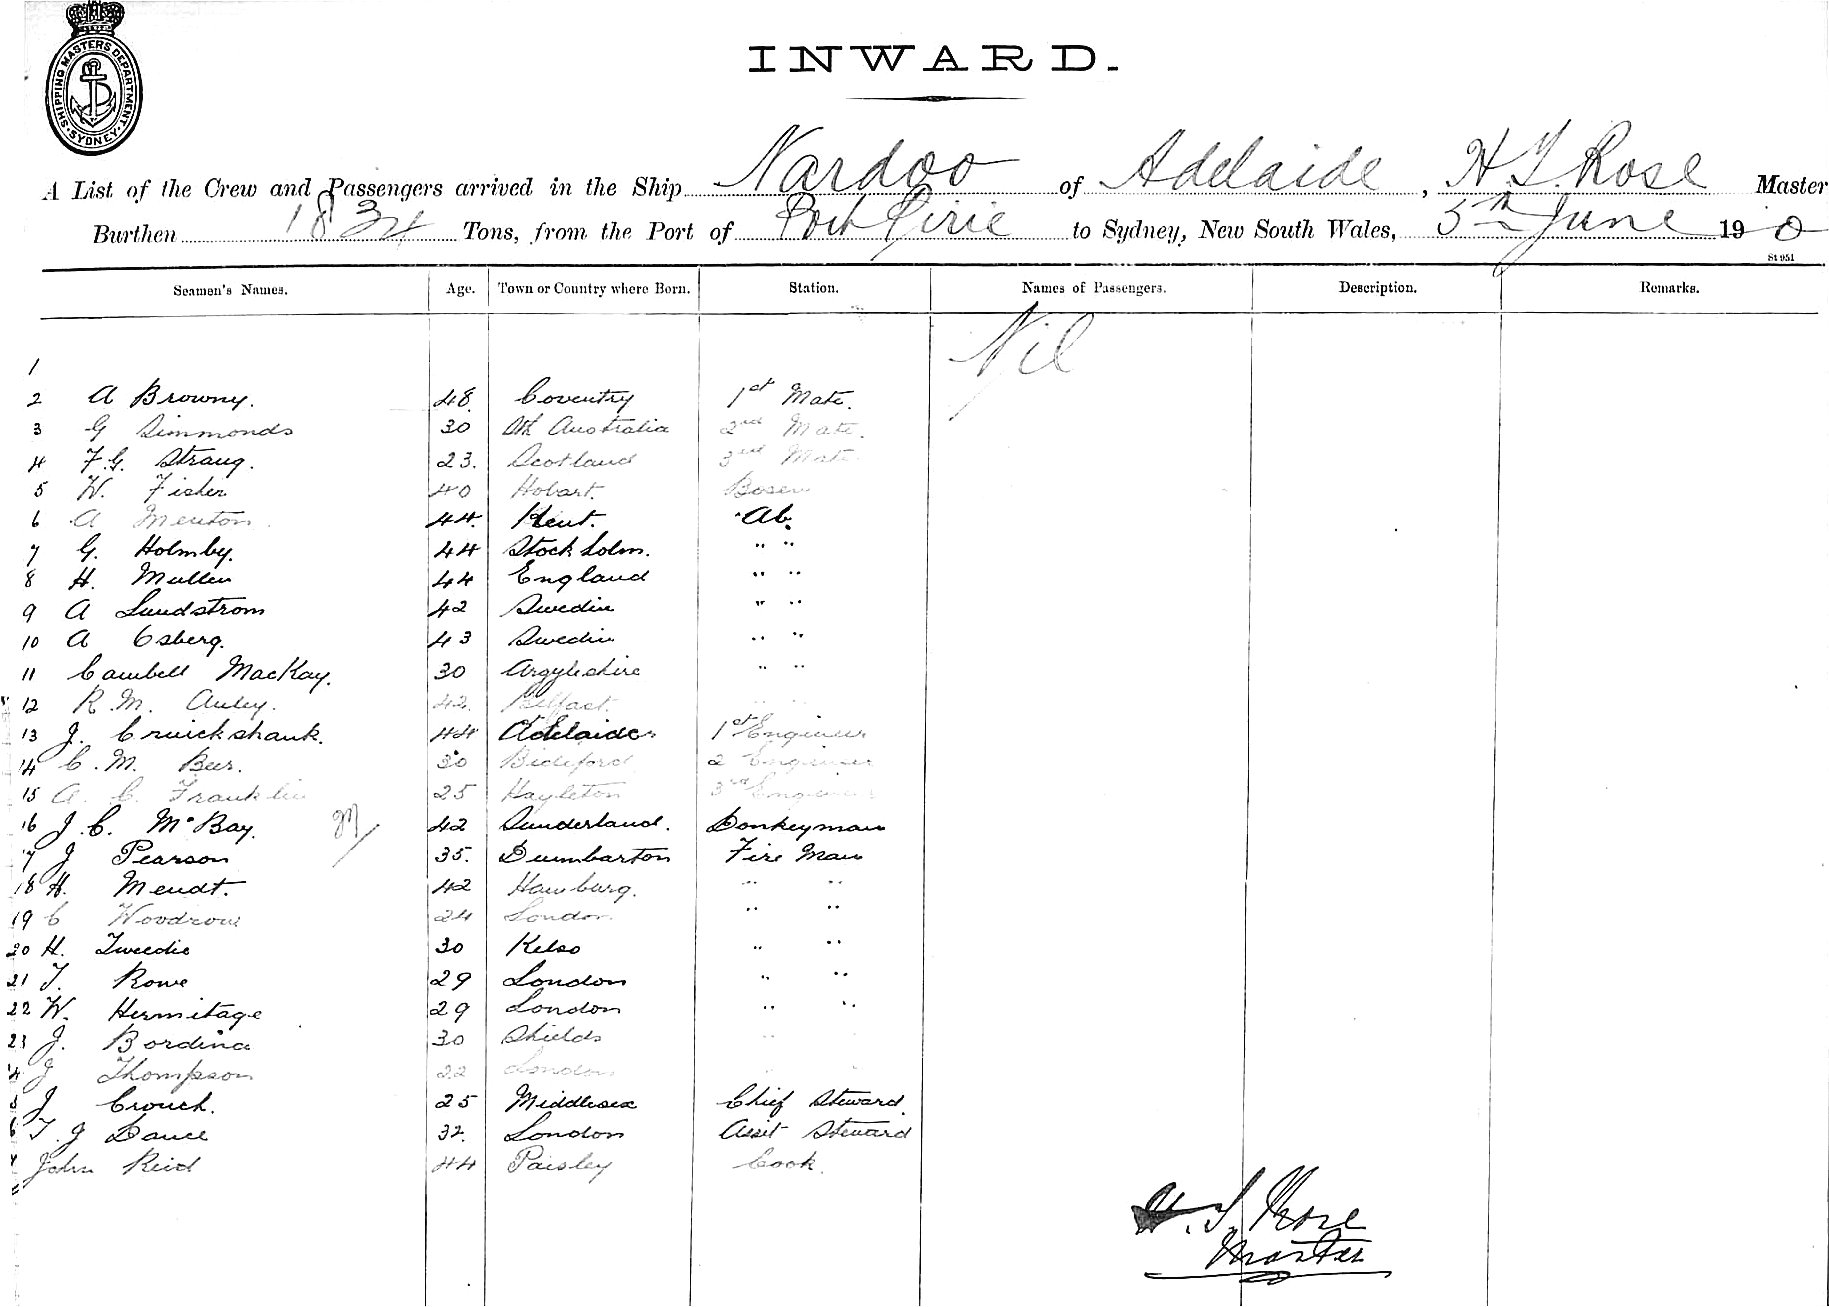 SHIPPING MASTERS DEPARTMENT · SYDNEY ·
INWARD.
A List of the Crew and Passengers arrived in the Ship Nardoo of Adelaide, H. T. Rose Master
Burthen 1834 Tons, from the Port of Port Pirie to Sydney, New South Wales, 5th June 19 0
St 951
Seamen's Names. Age. Town or Country where Born. Station. Names of Passengers. Description. Remarks.
Nil
1
2 A Browny. 48. Coventry 1st Mate.
3 G Simmonds 30 Sth Australia 2nd Mate.
4 F.G. Strang. 23. Scotland 3rd Mate
5 W. Fisher 40 Hobart. Bosen
6 A Menton. 44. Kent. Ab.
7 G. Holmby. 44 Stockholm. " "
8 H. Mullen 44 England " "
9 A Lundstrom 42 Swedin " "
10 A Osberg. 43 Swedin " "
11 Cambell MacKay. 30 Argyleshire " "
12 R. M. Auley. 42. Belfast. " "
13 J. Cruickshank. 44 Adelaide 1st Engineer
14 C. M. Beer. 30 Bideford 2 Engineer
15 A. C. Franklin 25 Hayleton 3rd Engineer
16 J. C. McBay. 42 Sunderland. Donkeyman
17 J Pearson 35. Dumbarton Fire Man
18 H. Mendt. 42 Hamburg. " "
19 C Woodrow 24 London " "
20 H. Tweedie 30 Kelso " "
21 T. Rowe 29 London " "
22 W. Hermitage 29 London " "
23 J. Bordina 30 Shields "
4 J Thompson 22 London " "
5 J Crouch. 25 Middlesex Chief Steward.
6 T. J Dance 32. London Asst Steward
7 John Reid 44 Paisley Cook.
H. T. Rose
Master